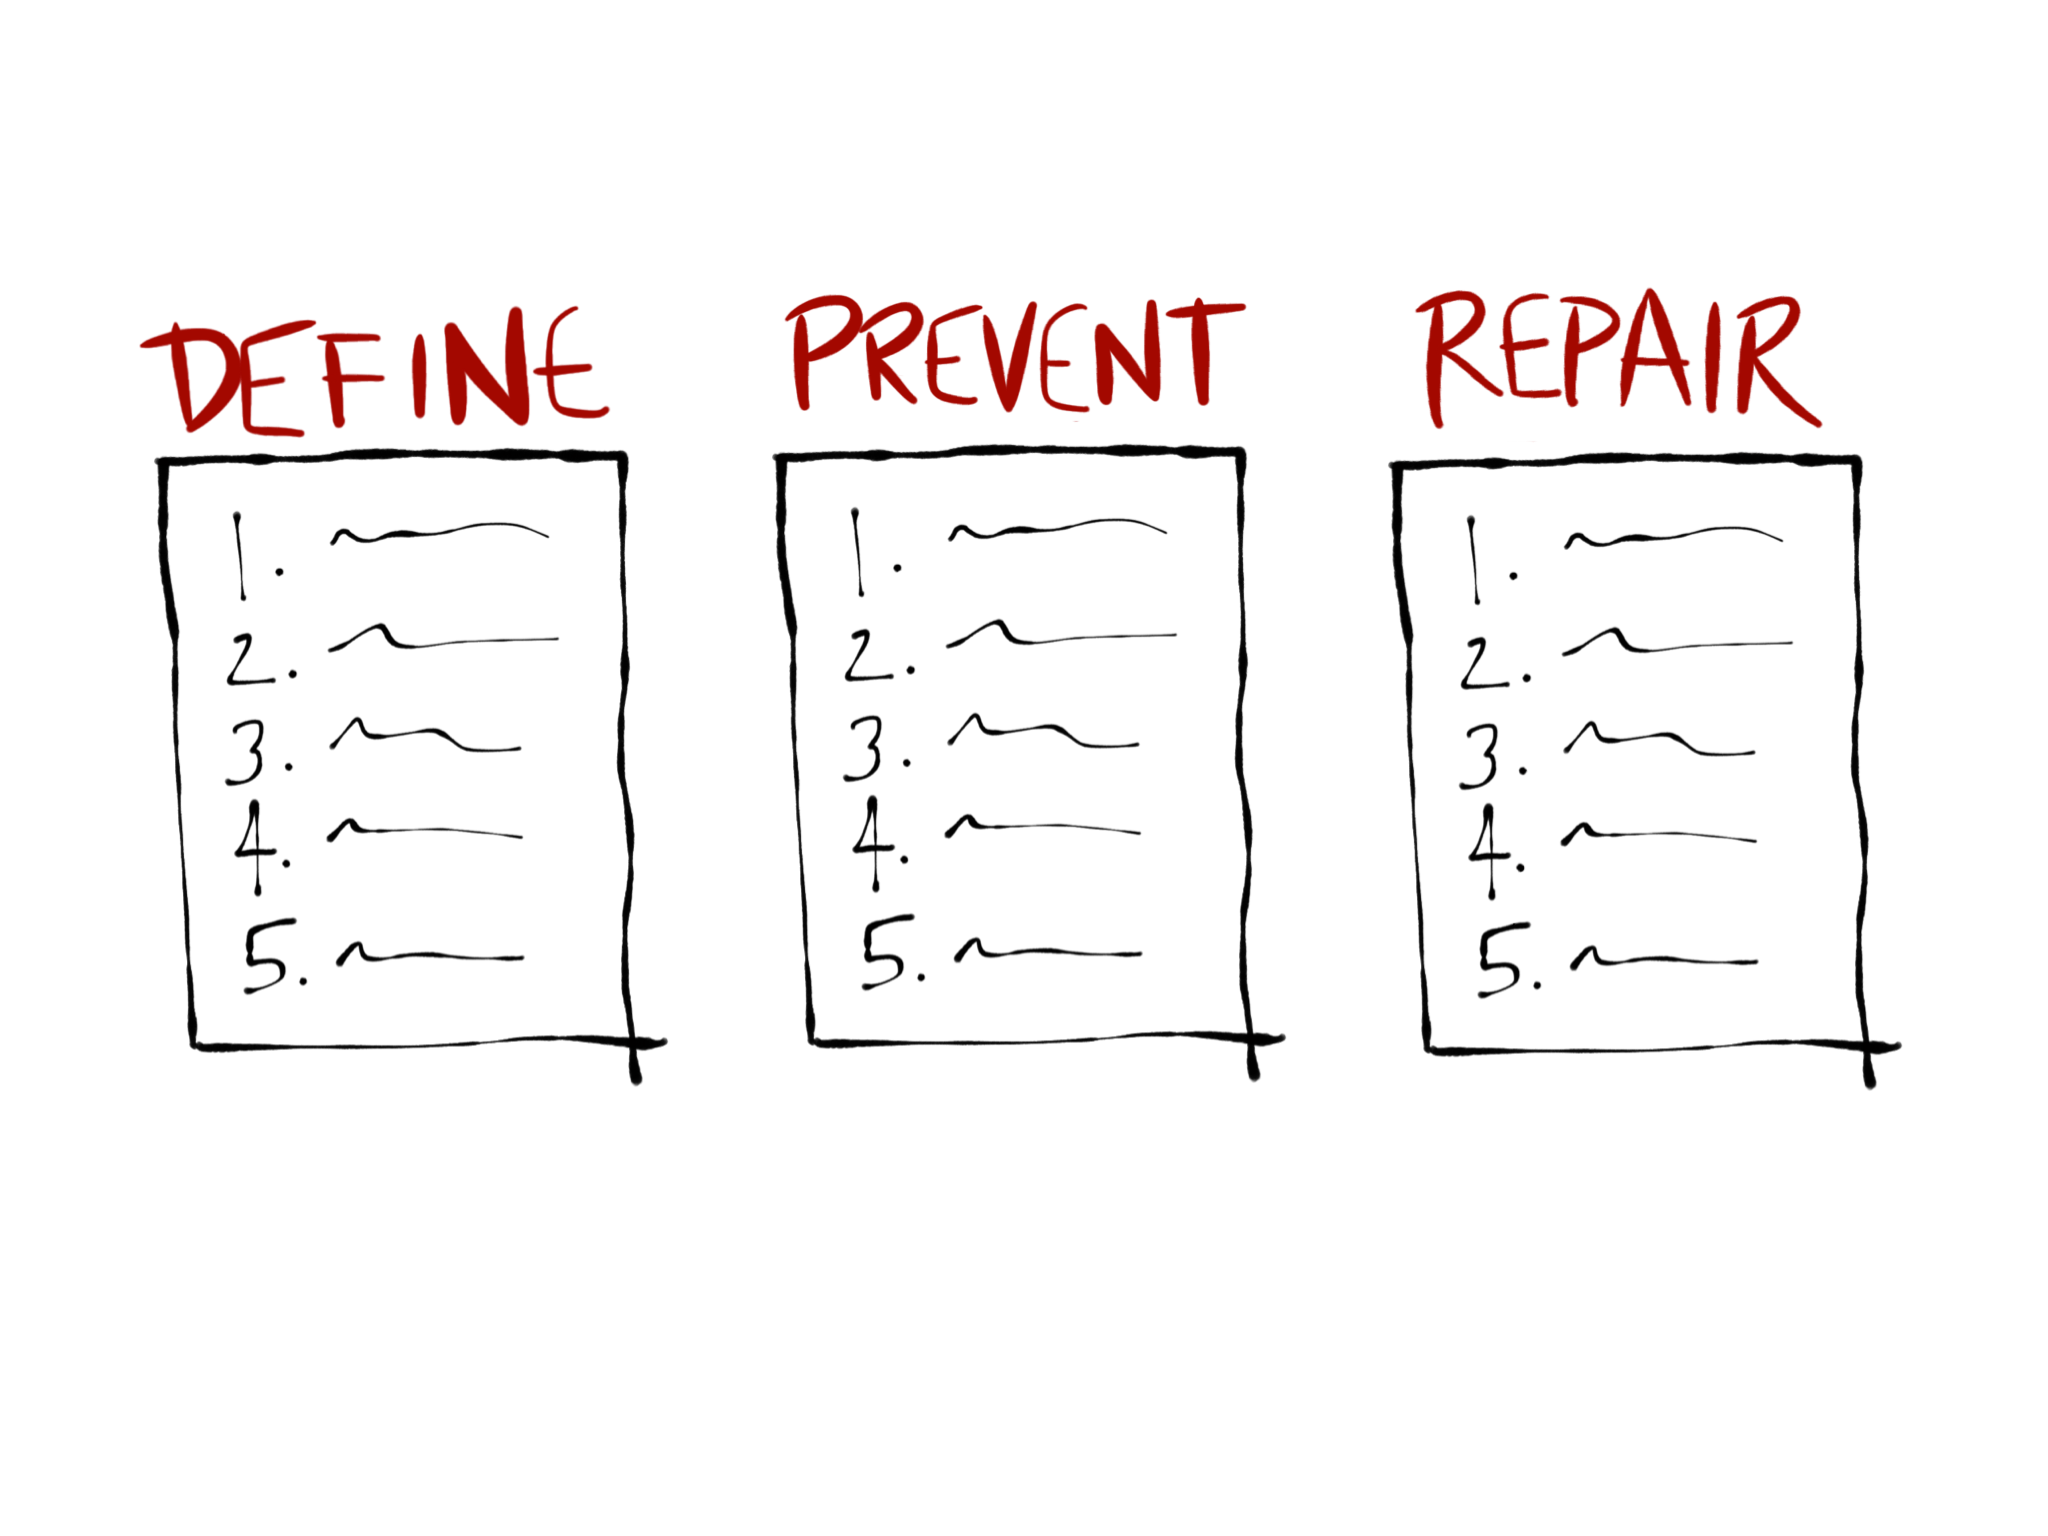 DEFINE
1.
2.
3.
4.
5.
PREVENT
1.
2.
3.
4.
5.
REPAIR
1.
2.
3.
4.
5.